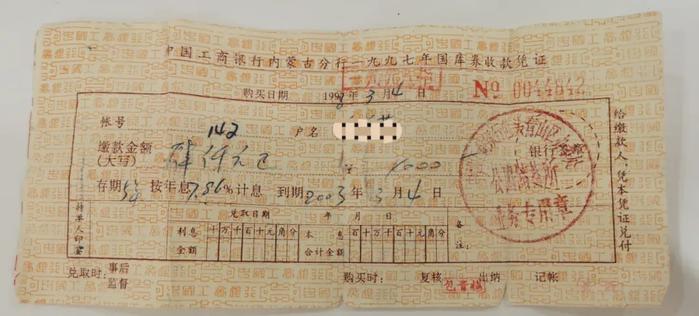 中国工商银行内蒙古分行一九九七年国库券收款凭证
购买日期 1998年3月4日 № 0044842
帐号 142 户名
缴款金额
(大写) 肆仟元正 4000
银行签章
存期5年 按年息7.86%计息 到期2003年3月4日
给缴款人,凭本凭证兑付
业务专用章
持单人印鉴
兑取日期 年 月 日
利息金额 十万千百十元角分 本息合计金额 百十万千百十元角分
备注:
兑取时: 事后监督 购买时: 复核 出纳 记帐